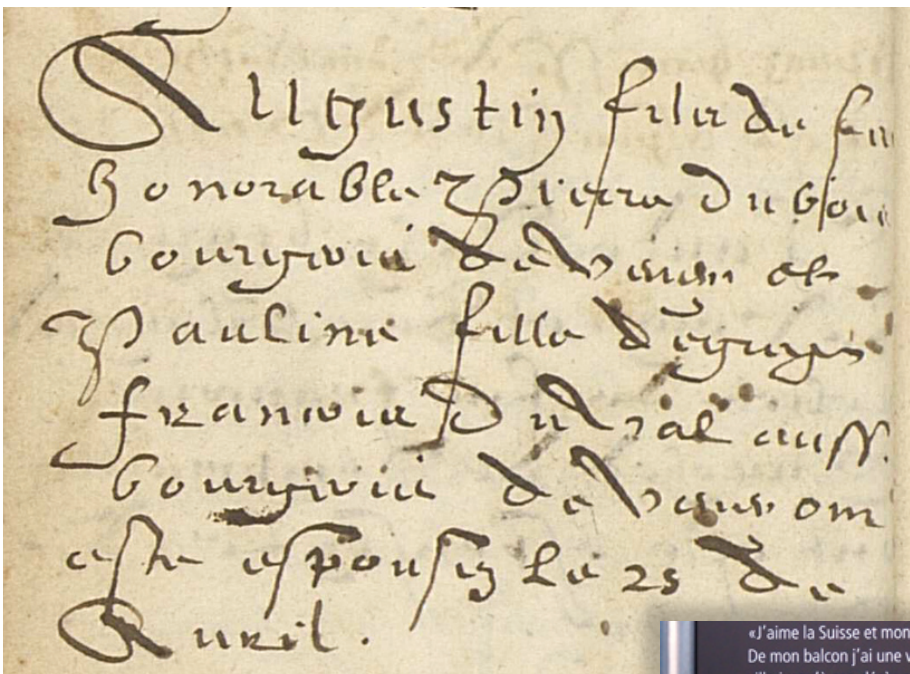 Augustin filz de feu
honorable Pierre Duboi
bourgeois de Vevey et
Pauline fille d'egrege
Francois Du Val auss
bourgeois de Vevey ont
este espousez le 25 de
Auril.
«J'aime la Suisse et mon
De mon balcon j'ai une v